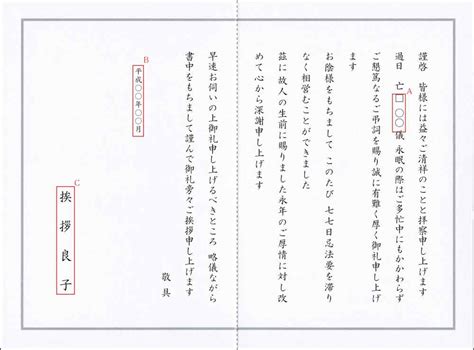 謹啓 皆様には益々ご清祥のことと拝察申し上げます
過日 亡□ ○○儀 永眠の際はご多忙中にもかかわらず
ご懇篤なるご弔詞を賜り誠に有難く厚く御礼申し上げ
ます
お陰様をもちまして このたび 七七日忌法要を滞り
なく相営むことができました
茲に故人の生前に賜りました永年のご厚情に対し改
めて心から深謝申し上げます
早速お伺いの上御礼申し上げるべきところ 略儀ながら
書中をもちまして謹んで御礼旁々ご挨拶申し上げます
敬具
平成○○年○○月
挨拶良子
A
B
C